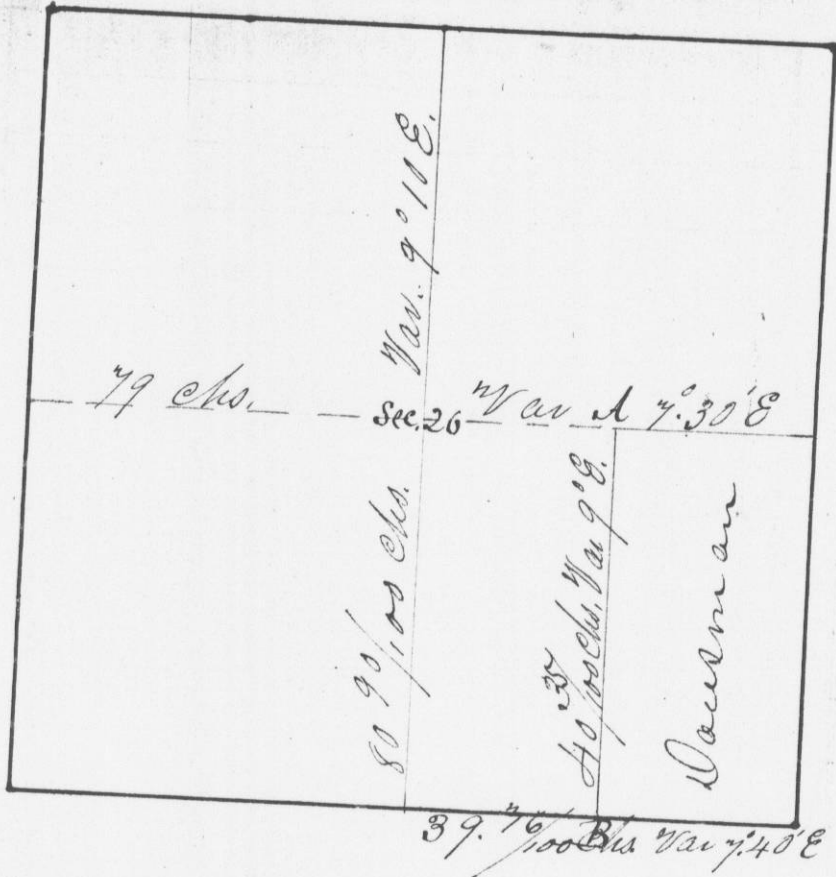 Var. 9° 10 E.
79 chs.
Sec. 26
Var A 7°.30' E
80 90/100 chs.
40 35/100 chs. Var 9° E.
Dousman
B
39. 76/100 chs Var 7°.40' E